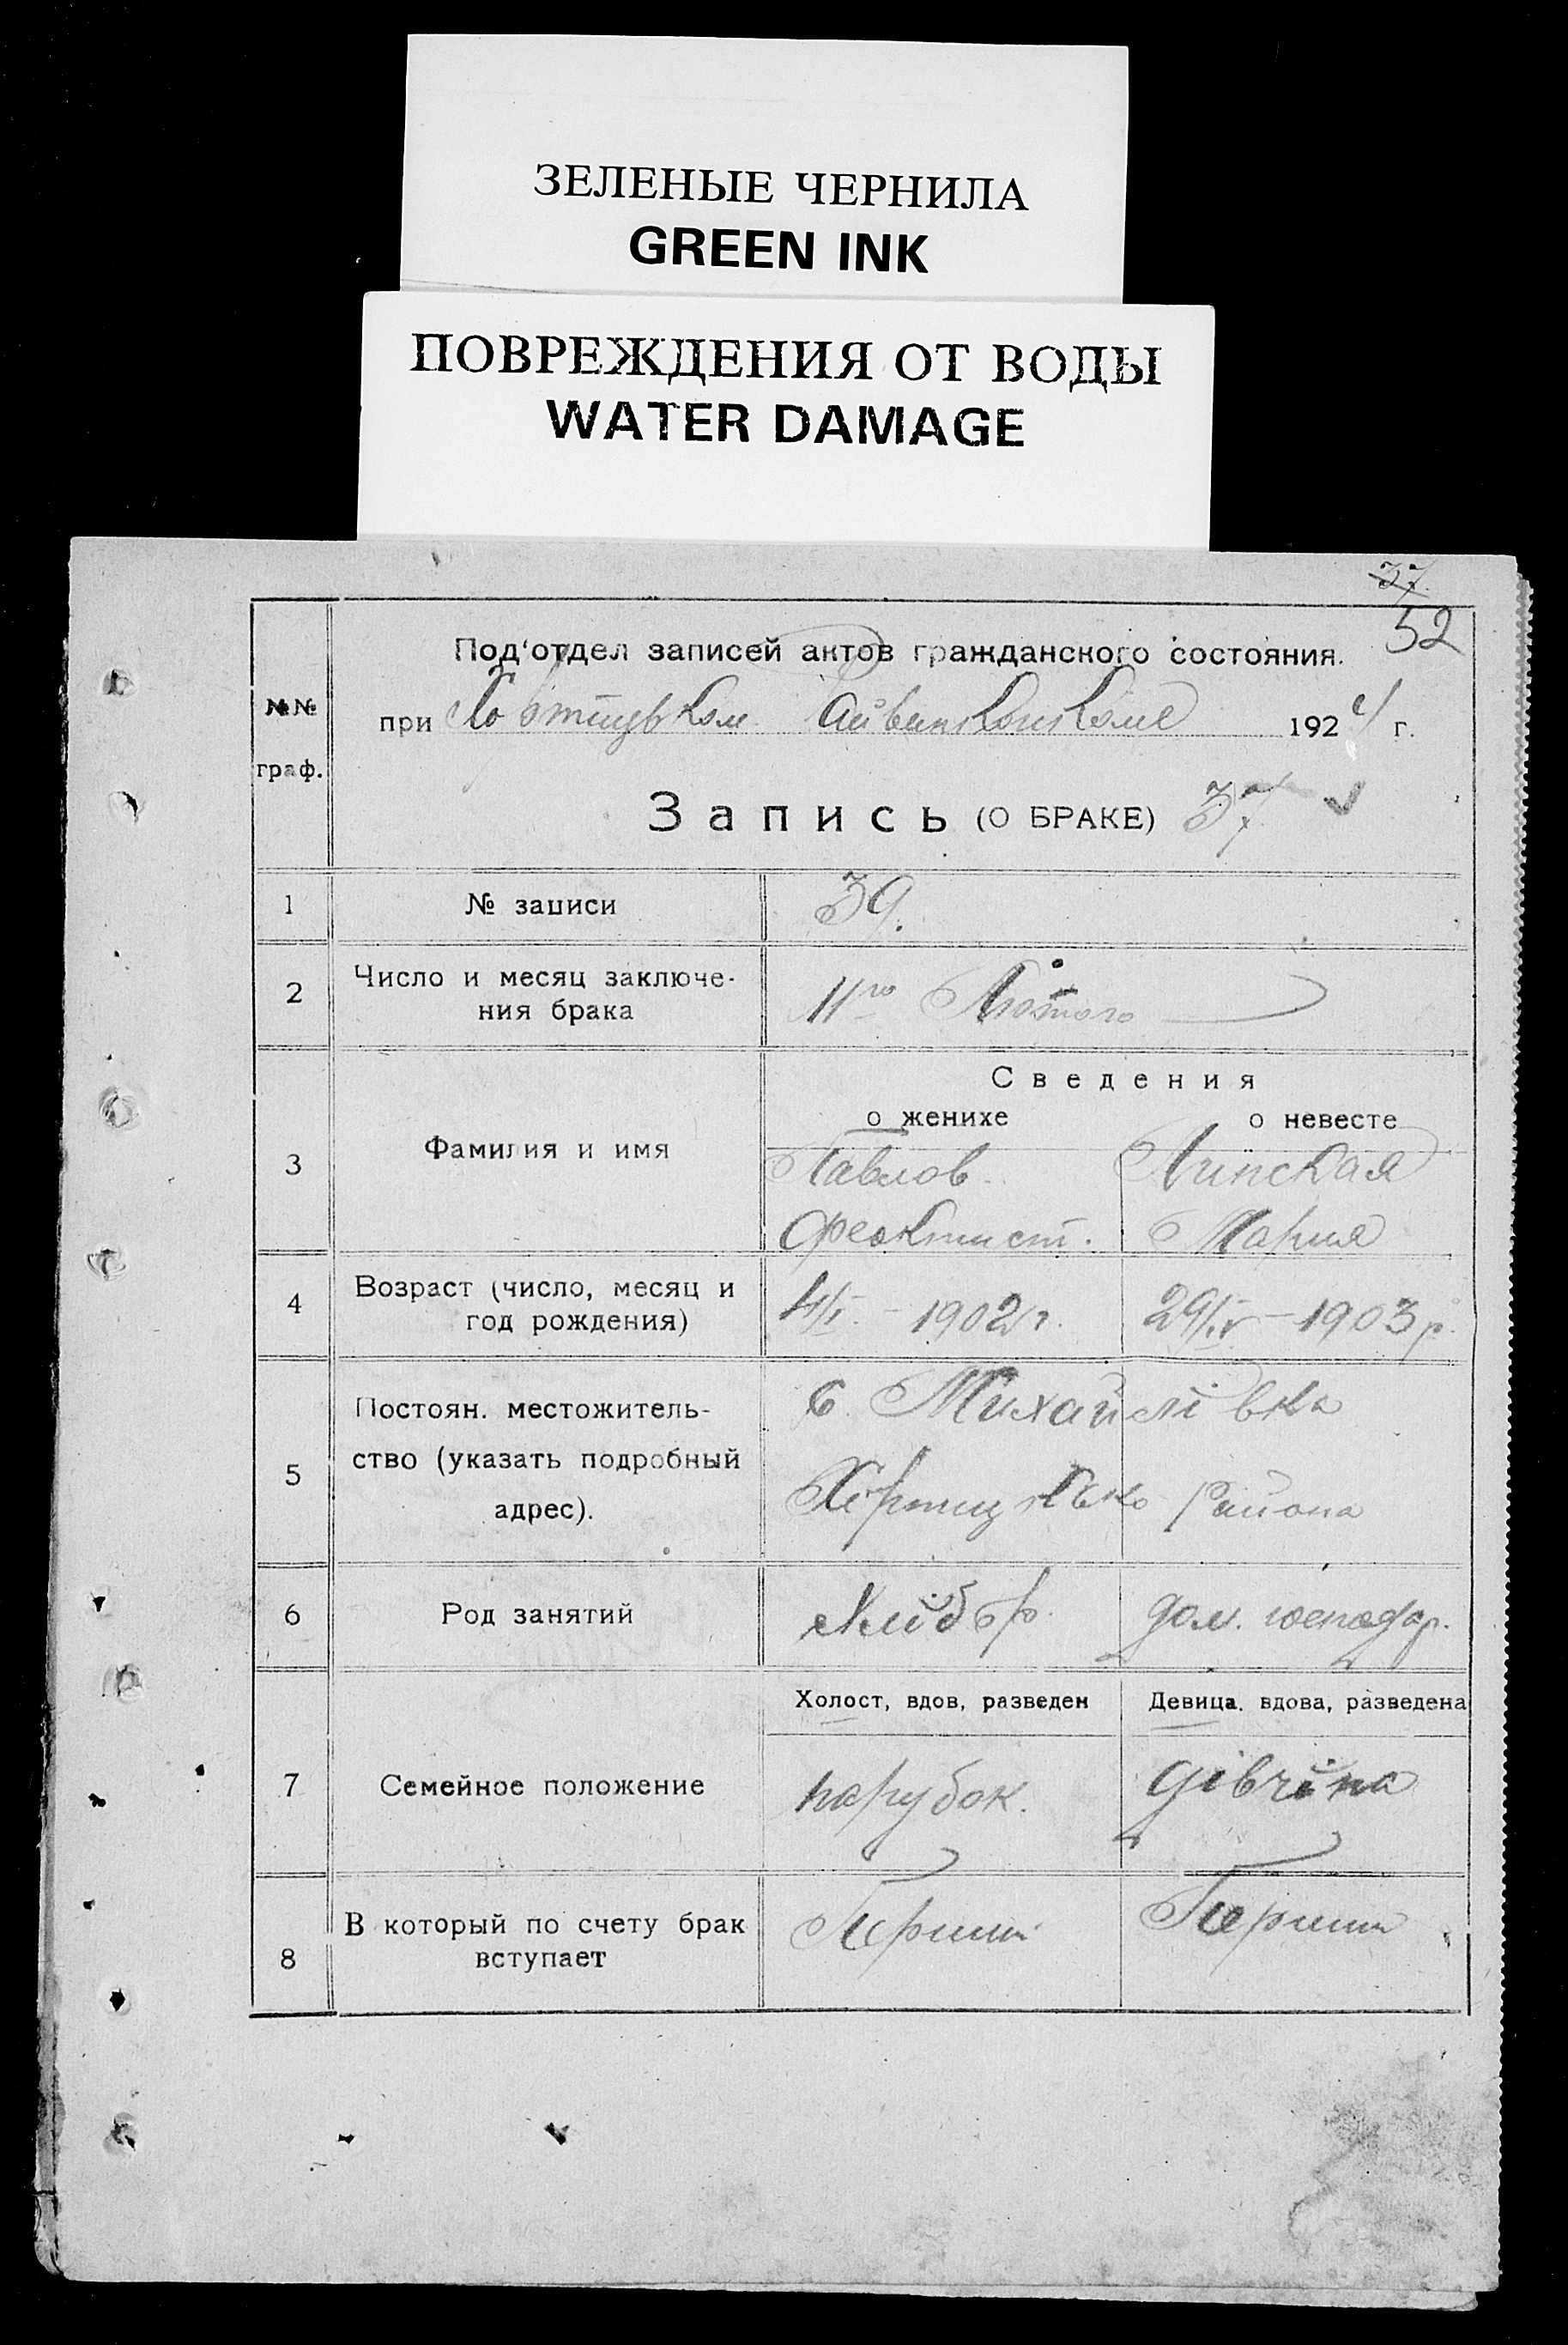 ЗЕЛЕНЫЕ ЧЕРНИЛА
GREEN INK
ПОВРЕЖДЕНИЯ ОТ ВОДЫ
WATER DAMAGE
37
52
Под'отдел записей актов гражданского состояния.
№№
при 192 г.
граф.
Запись (О БРАКЕ) 37
1 № записи 39.
2 Число и месяц заключе-
ния брака 11го Лютого
Сведения
о женихе о невесте
3 Фамилия и имя Павлов Липская
Феоктист. Мария
4 Возраст (число, месяц и
год рождения) 4/I - 1902 г. 29/IV - 1903 р.
5 Постоян. местожитель-
ство (указать подробный
адрес).
с. Михайлівка
Района
6 Род занятий хлібор. дом. господар.
Холост, вдов, разведен Девица, вдова, разведена
7 Семейное положение парубок. дівчина
8 В который по счету брак
вступает Перший Перший